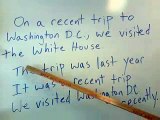 On a recent trip to
Washington D.C., we visited
the White House
The trip was last year
It was a recent trip
We visited Washington recently.
DC